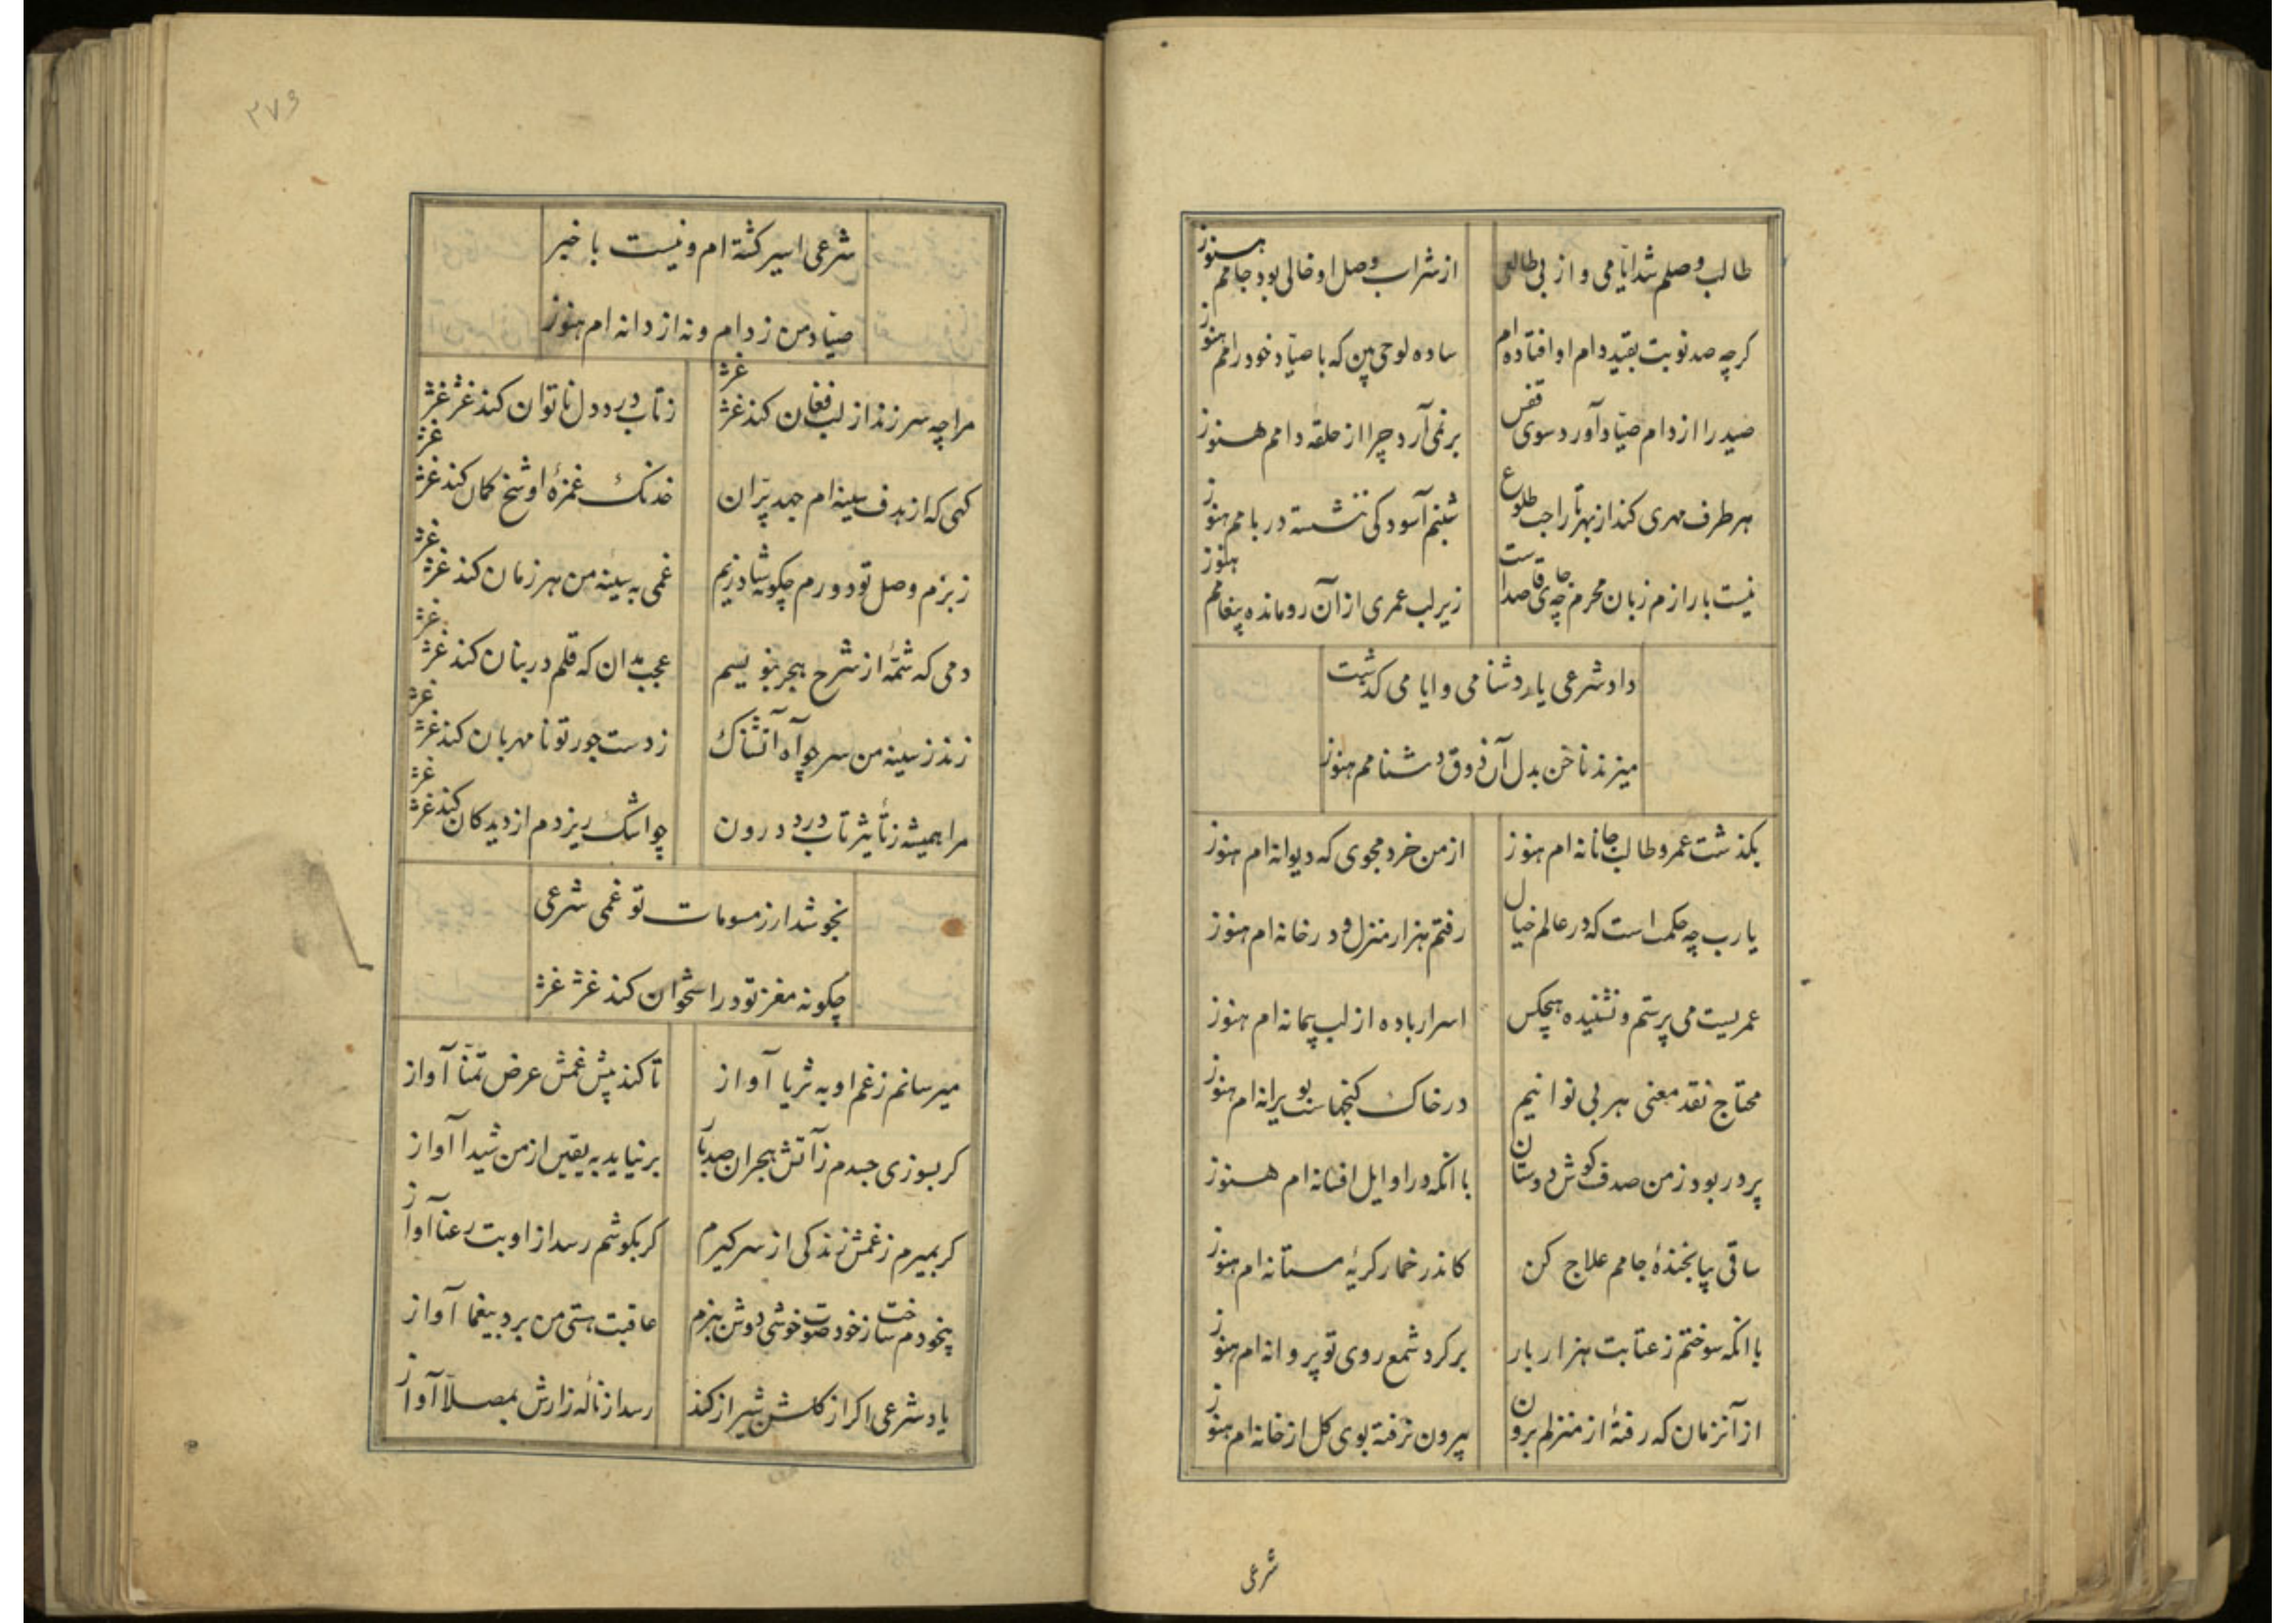 طالب وصلم شد ایامی و از بی طالعی
از شراب وصل او خالی بود جامم هنوز
کرچه صد نوبت بقید دام او افتاده ام
ساده لوحی بین که با صیاد خود رامم هنوز
صید را از دام صیاد آورد سوی قفس
بر نمی آرد چرا از حلقه دامم هنوز
هر طرف مهری کند از بهر تاراجت طلوع
شبنم آسود کی ننشسته در بامم هنوز
نیست بار ازم زبان محرم چه جای قاصداست
زیر لب عمری از آن رو مانده پیغامم هنوز
داد شرعی یار دشنامی و ایامی کذشت
میزند ناخن بدل آن ذوق دشنامم هنوز
بکذشت عمر و طالب جانانه ام هنوز
از من خرد مجوی که دیوانه ام هنوز
یارب چه حکمت است که در عالم خیال
رفتم هزار منزل و در خانه ام هنوز
عمریست می پرستم و نشنیده هیچکس
اسرار باده از لب پیمانه ام هنوز
محتاج نقد معنی هر بی نوا نیم
در خاک کنجهاست بویرانه ام هنوز
پر در بود ز من صدف کوش دوستان
با انکه در اوایل افسانه ام هنوز
ساقی بیا بخندهٔ جامم علاج کن
کاندر خمار کریهٔ مستانه ام هنوز
با انکه سوختم ز عتابت هزار بار
بر کرد شمع روی تو پروانه ام هنوز
از آنزمان که رفتهٔ از منزلم برون
بیرون نرفته بوی کل از خانه ام هنوز
شرعی
۲۷۶
شرعی اسیر کشته ام و نیست با خبر
صیاد من ز دام و نه از دانه ام هنوز
مرا چه سر زند از لب فغان کند غژ غژ
ز تاب درد دل ناتوان کند غژ غژ
کهی که از هدف سینه ام جهد پران
خدنک غمزهٔ او شخ کمان کند غژ غژ
ز بزم وصل تو دورم چکونه شاد زیم
غمی به سینه من هر زمان کند غژ غژ
دمی که شمّهٔ از شرح هجر بنویسم
عجب مدان که قلم در بنان کند غژ غژ
زند ز سینه من سر چو آه آتشناک
ز دست جور تو نامهربان کند غژ غژ
مرا همیشه ز تأثیر تاب درد درون
چو اشک ریزدم از دیدکان کند غژ غژ
نجوشد ار ز مسومات تو غمی شرعی
چکونه مغز تو در استخوان کند غژ غژ
میرسانم ز غم او به ثریا آواز
تا کند پیش غمش عرض تمنّا آواز
کر بسوزی جسدم ز آتش هجران صد بار
بر نیاید به یقین از من شیدا آواز
کر بمیرم ز غمش زندکی از سر کیرم
کر بکوشم رسد از او بت رعنا آواز
بیخودم ساخت ز خود صوت خوشی دوش ببزم
عاقبت هستی من برد بیغما آواز
یاد شرعی اکر از کلشن شیراز کند
رسد از ناله زارش بمصلّا آواز